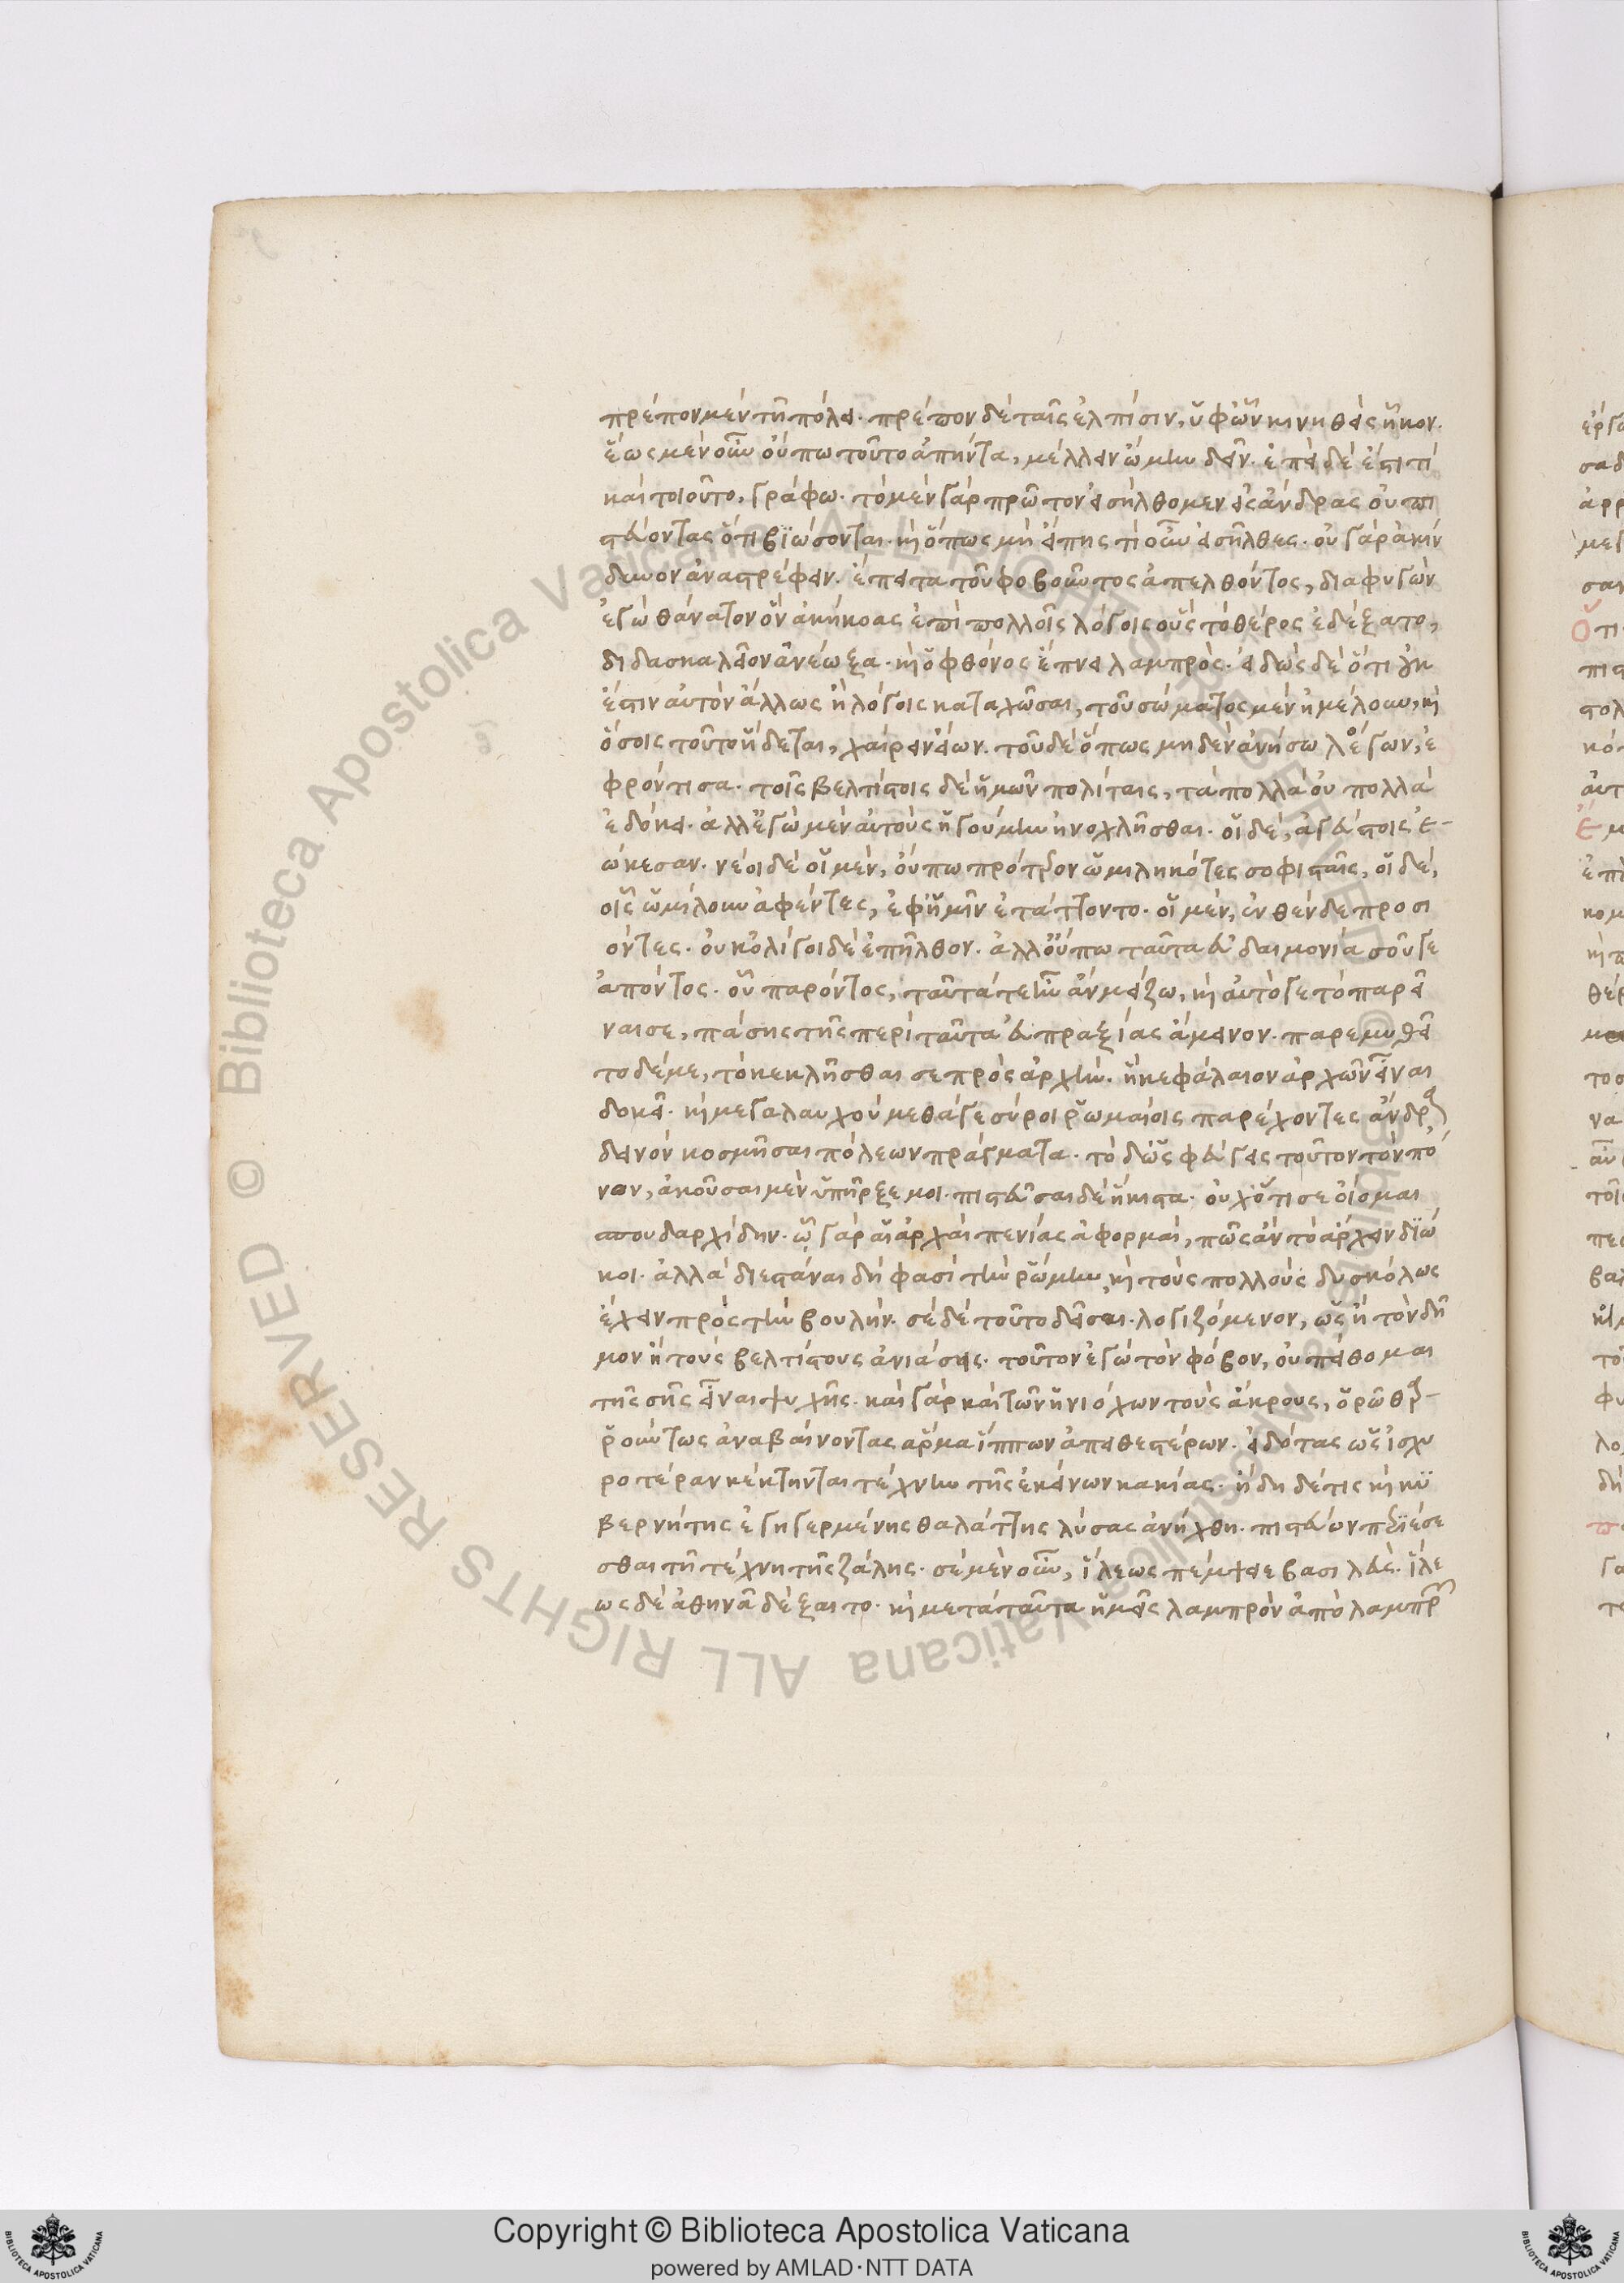 πρέπον μὲν τῆ πόλει. πρέπον δὲ ταῖς ἐλπίσιν, ὑφ ὧν κινηθεὶς ἧκον.
ἕως μὲν οὖν οὔπω τοῦτο ἀπήντα, μέλλειν ὤμην δεῖν. ἐπεὶ δέ ἐστι τί
καὶ τοιοῦτο, γράφω. τὸ μὲν γὰρ πρῶτον εἰσήλθομεν εἰς ἄνδρας οὐ πι
στεύοντας ὅτι βϊώσονται. κὴ ὅπως μὴ εἴπης τί οὖν εἰσῆλθες. οὐ γὰρ ἀκίν
δυνον ἀναστρέφειν. ἔπειτα τοῦ φοβοῦντος ἀπελθόντος, διαφυγὼν
ἐγὼ θάνατον ὃν ἀκήκοας ἐπὶ πολλοῖς λόγοις οὓς τὸ θέρος ἐδέξατο,
διδασκαλεῖον ἀνέωξα. κὴ ὁ φθόνος ἔπνει λαμπρὸς. εἰδὼς δὲ ὅτι οὐκ
ἔστιν αὐτὸν ἄλλως ἢ λόγοις καταχῶσαι, τοῦ σώματος μὲν ἠμέλουν, κὴ
ὅσοις τοῦτο ἥδεται, χαίρειν εἴων. τοῦ δὲ ὅπως μηδὲν ἀνήσω λέγων, ἐ
φρόντισα. τοῖς βελτίστοις δὲ ἡμῶν πολίταις, τὰ πολλὰ οὐ πολλὰ
ἐδόκει. ἀλλ ἐγὼ μὲν αὐτοὺς ἡγούμην ἠνοχλῆσθαι. οἱ δέ, ἀγεύστοις ἐ
ῴκεσαν. νέοι δὲ οἱ μέν, οὔπω πρότερον ὡμιληκότες σοφισταῖς, οἱ δέ,
οἷς ὡμίλουν ἀφέντες, ἐφ ἡμῖν ἐτάττοντο. οἱ μέν, ἐνθένδε προσι
όντες. οὐκ ὀλίγοι δὲ ἐπῆλθον. ἀλλ οὔπω ταῦτα εὐδαιμονία σοῦ γε
ἀπόντος. οὗ παρόντος, ταῦτά τε ἦν ἂν μείζω, κὴ αὐτό γε τὸ παρεῖ
ναι σε, πάσης τῆς περὶ ταῦτα εὐπραξίας ἄμεινον. παρεμυθεῖ
το δέ με, τὸ κεκλῆσθαι σε πρὸς ἀρχὴν. ἣ κεφάλαιον ἀρχῶν εἶναι
δοκεῖ. κὴ μεγαλαυχούμεθά γε σύροι ῥωμαίοις παρέχοντες ἄνδρα
δεινὸν κοσμῆσαι πόλεων πράγματα. τὸ δ ὡς φεύγεις τοῦτον τὸν πό
νον, ἀκοῦσαι μὲν ὑπῆρξε μοι. πιστεῦσαι δὲ ἥκιστα. οὐχ ὅτι σε οἴομαι
σπουδαρχίδην. ᾧ γὰρ αἱ ἀρχαὶ πενίας ἀφορμαί, πῶς ἂν τὸ ἄρχειν διώ
κοι. ἀλλὰ διεστάναι δή φασὶ τὴν ῥώμην, κὴ τοὺς πολλοὺς δυσκόλως
ἔχειν πρὸς τὴν βουλήν. σὲ δὲ τοῦτο δεῖσαι. λογιζόμενον, ὡς ἢ τὸν δῆ
μον ἢ τοὺς βελτίστους ἀνιάσεις. τοῦτον ἐγὼ τὸν φόβον, οὐ πείθομαι
τῆς σῆς εἶναι ψυχῆς. καὶ γὰρ καὶ τῶν ἡνιόχων τοὺς ἄκρους, ὁρῶ θαρ
ροῦντως ἀναβαίνοντας ἅρμα ἵππων ἀπειθεστέρων. εἰδότας ὡς ἰσχυ
ροτέραν κέκτηνται τέχνην τῆς ἐκείνων κακίας. ἤδη δέ τις κὴ κυ
βερνήτης ἐγηγερμένης θαλάττης λύσας ἀνήχθη. πιστεύων περιέσε
σθαι τῆ τέχνη τῆς ζάλης. σὲ μὲν οὖν, ἵλεως πέμψειε βασιλεὺς. ἵλε
ως δὲ ἀθηνᾶ δέξαιτο. κὴ μετὰ ταῦτα ἡμεῖς λαμπρὸν ἀπὸ λαμπρῶν
Copyright © Biblioteca Apostolica Vaticana
powered by AMLAD·NTT DATA